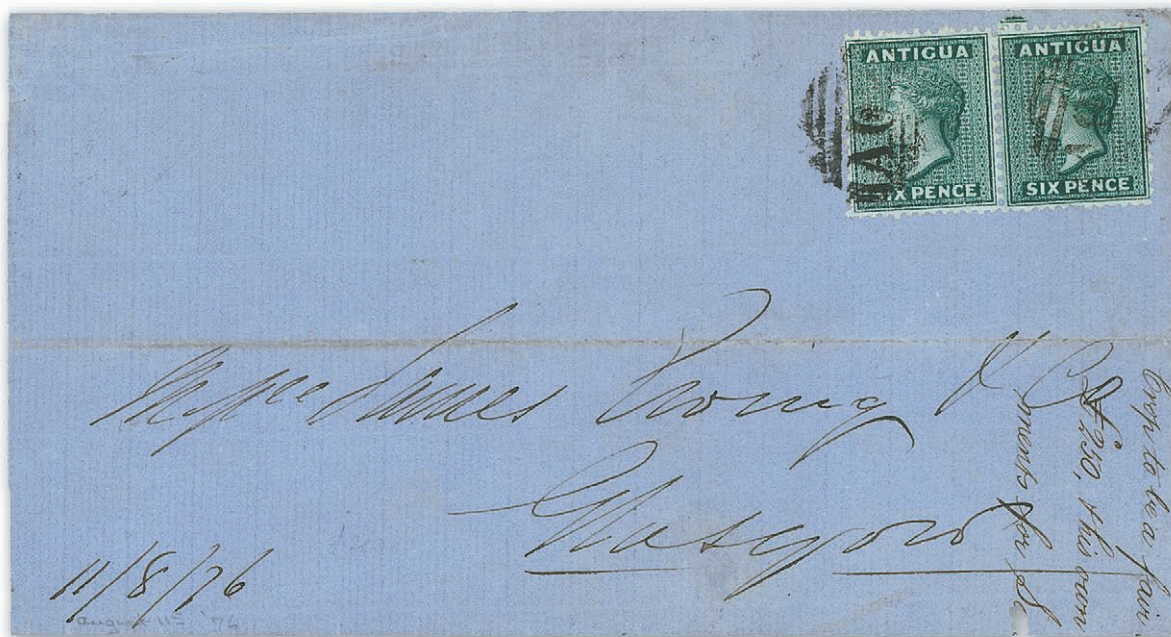 ANTIGUA
SIX PENCE
ANTIGUA
SIX PENCE
A02
Messrs James Ewing & Co
Glasgow
11/8/76
August 11th 76
Crop to be a fair
£250, & his own
ments for